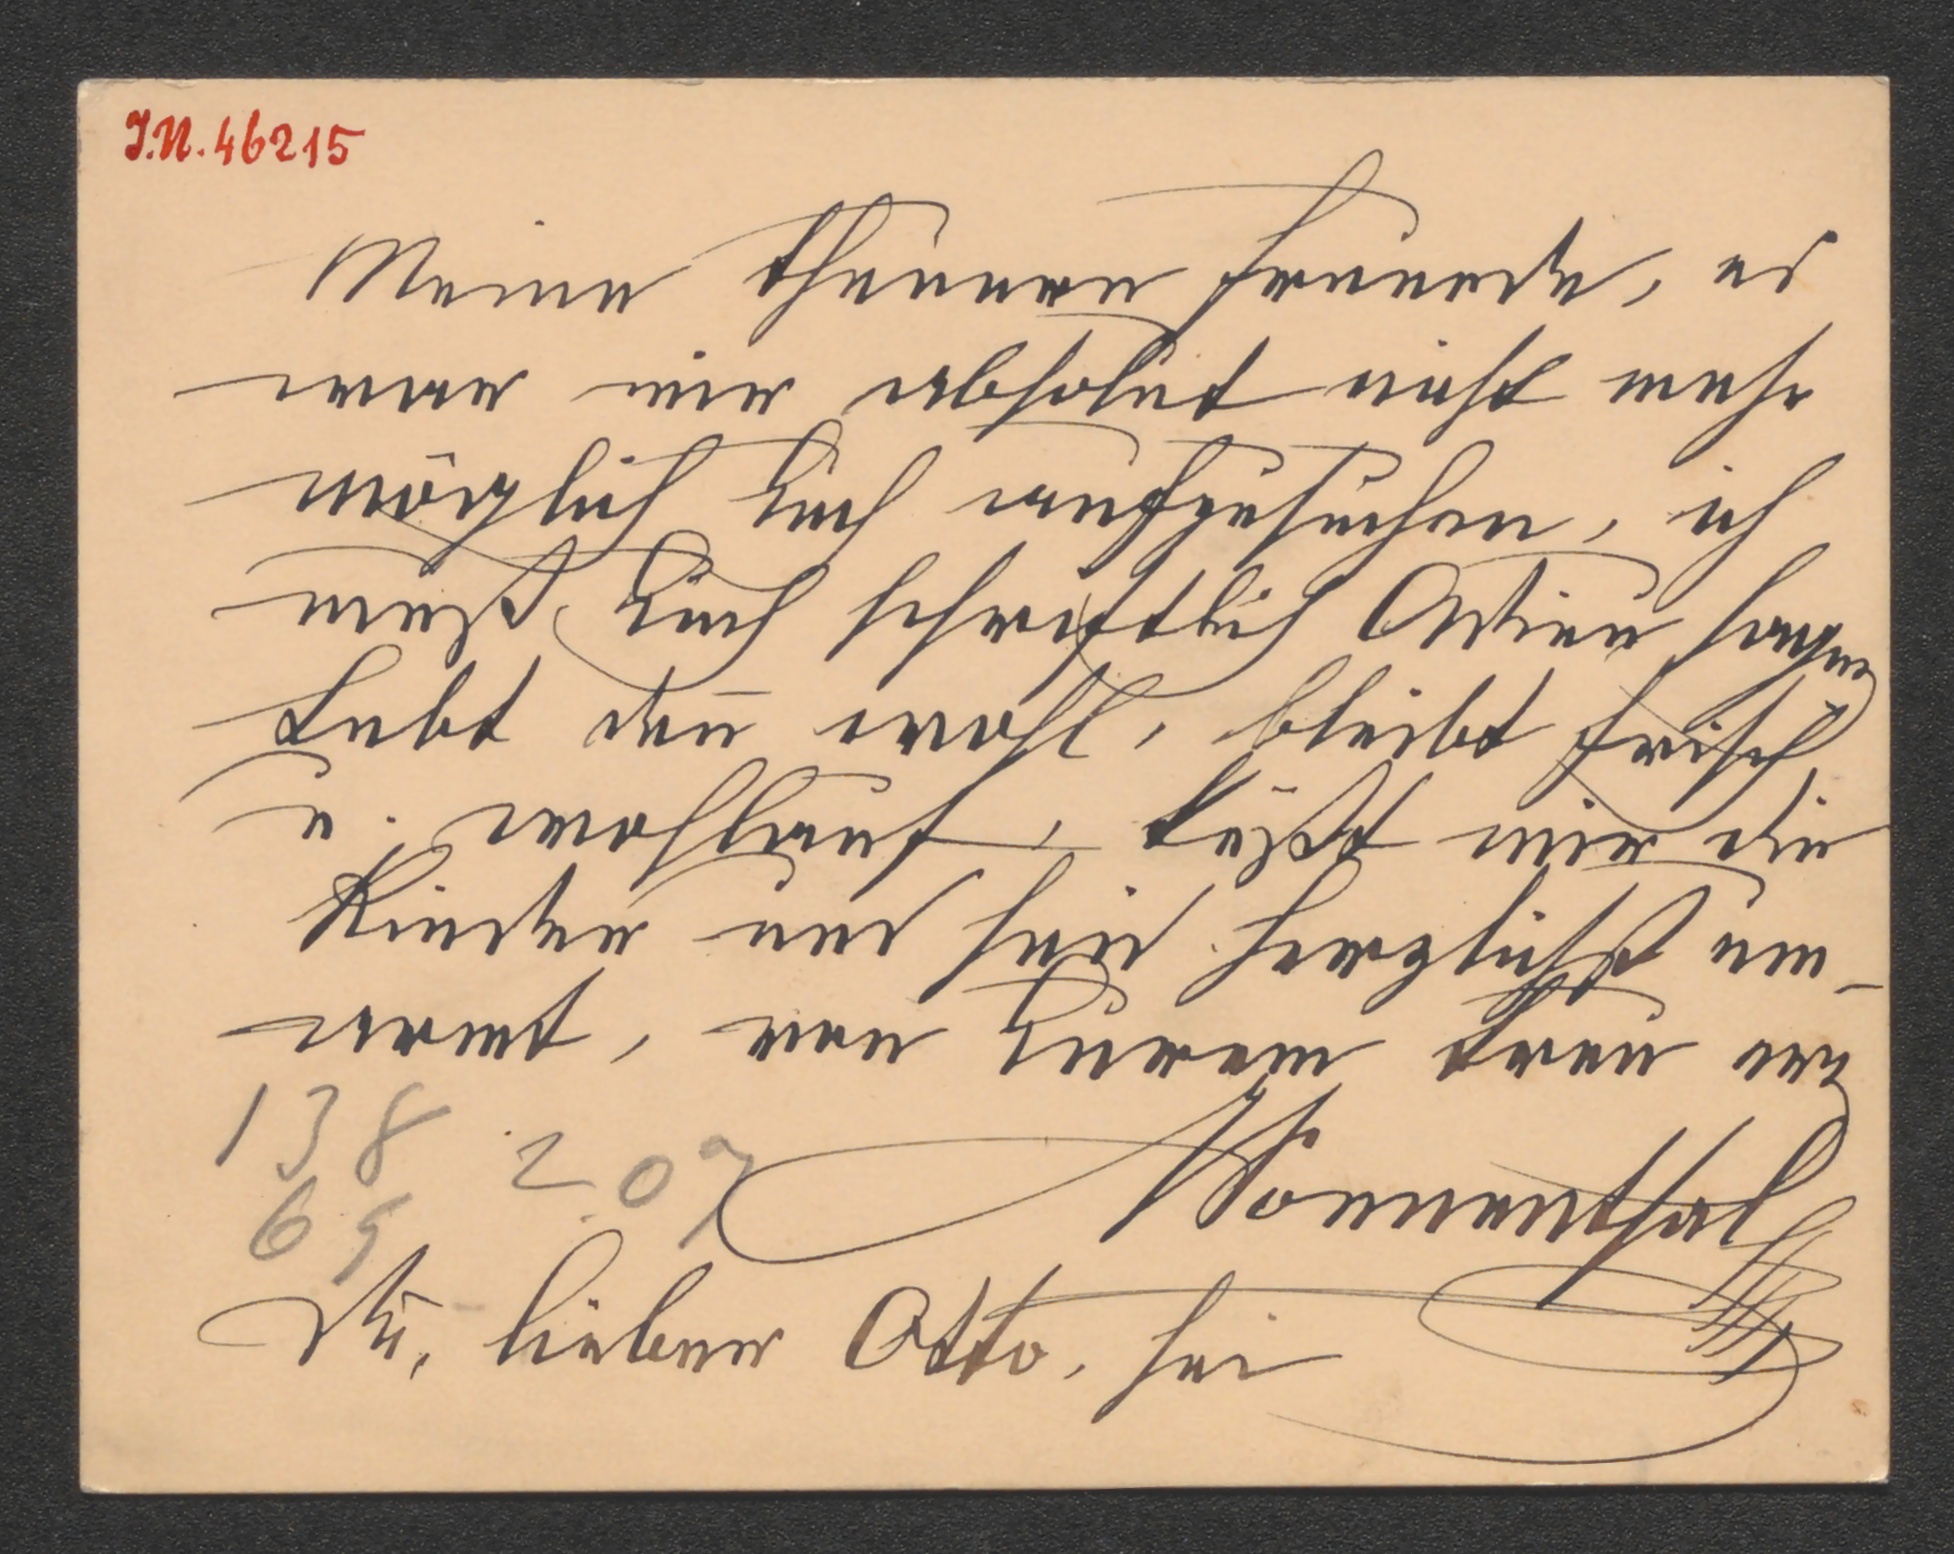 J.N. 46215
Meine theueren Freunde, es
war mir absolut nicht mehr
möglich Euch aufzusuchen, ich
muß Euch schriftlich Adieu sagen
Lebt deñ wohl, bleibt frisch
u. wohlauf, küßt mir die
Kinder und seid herzlichst um-
armt, von Eurem treu erg
Sonnenthal
138 207
69
Du, lieber Otto, sei